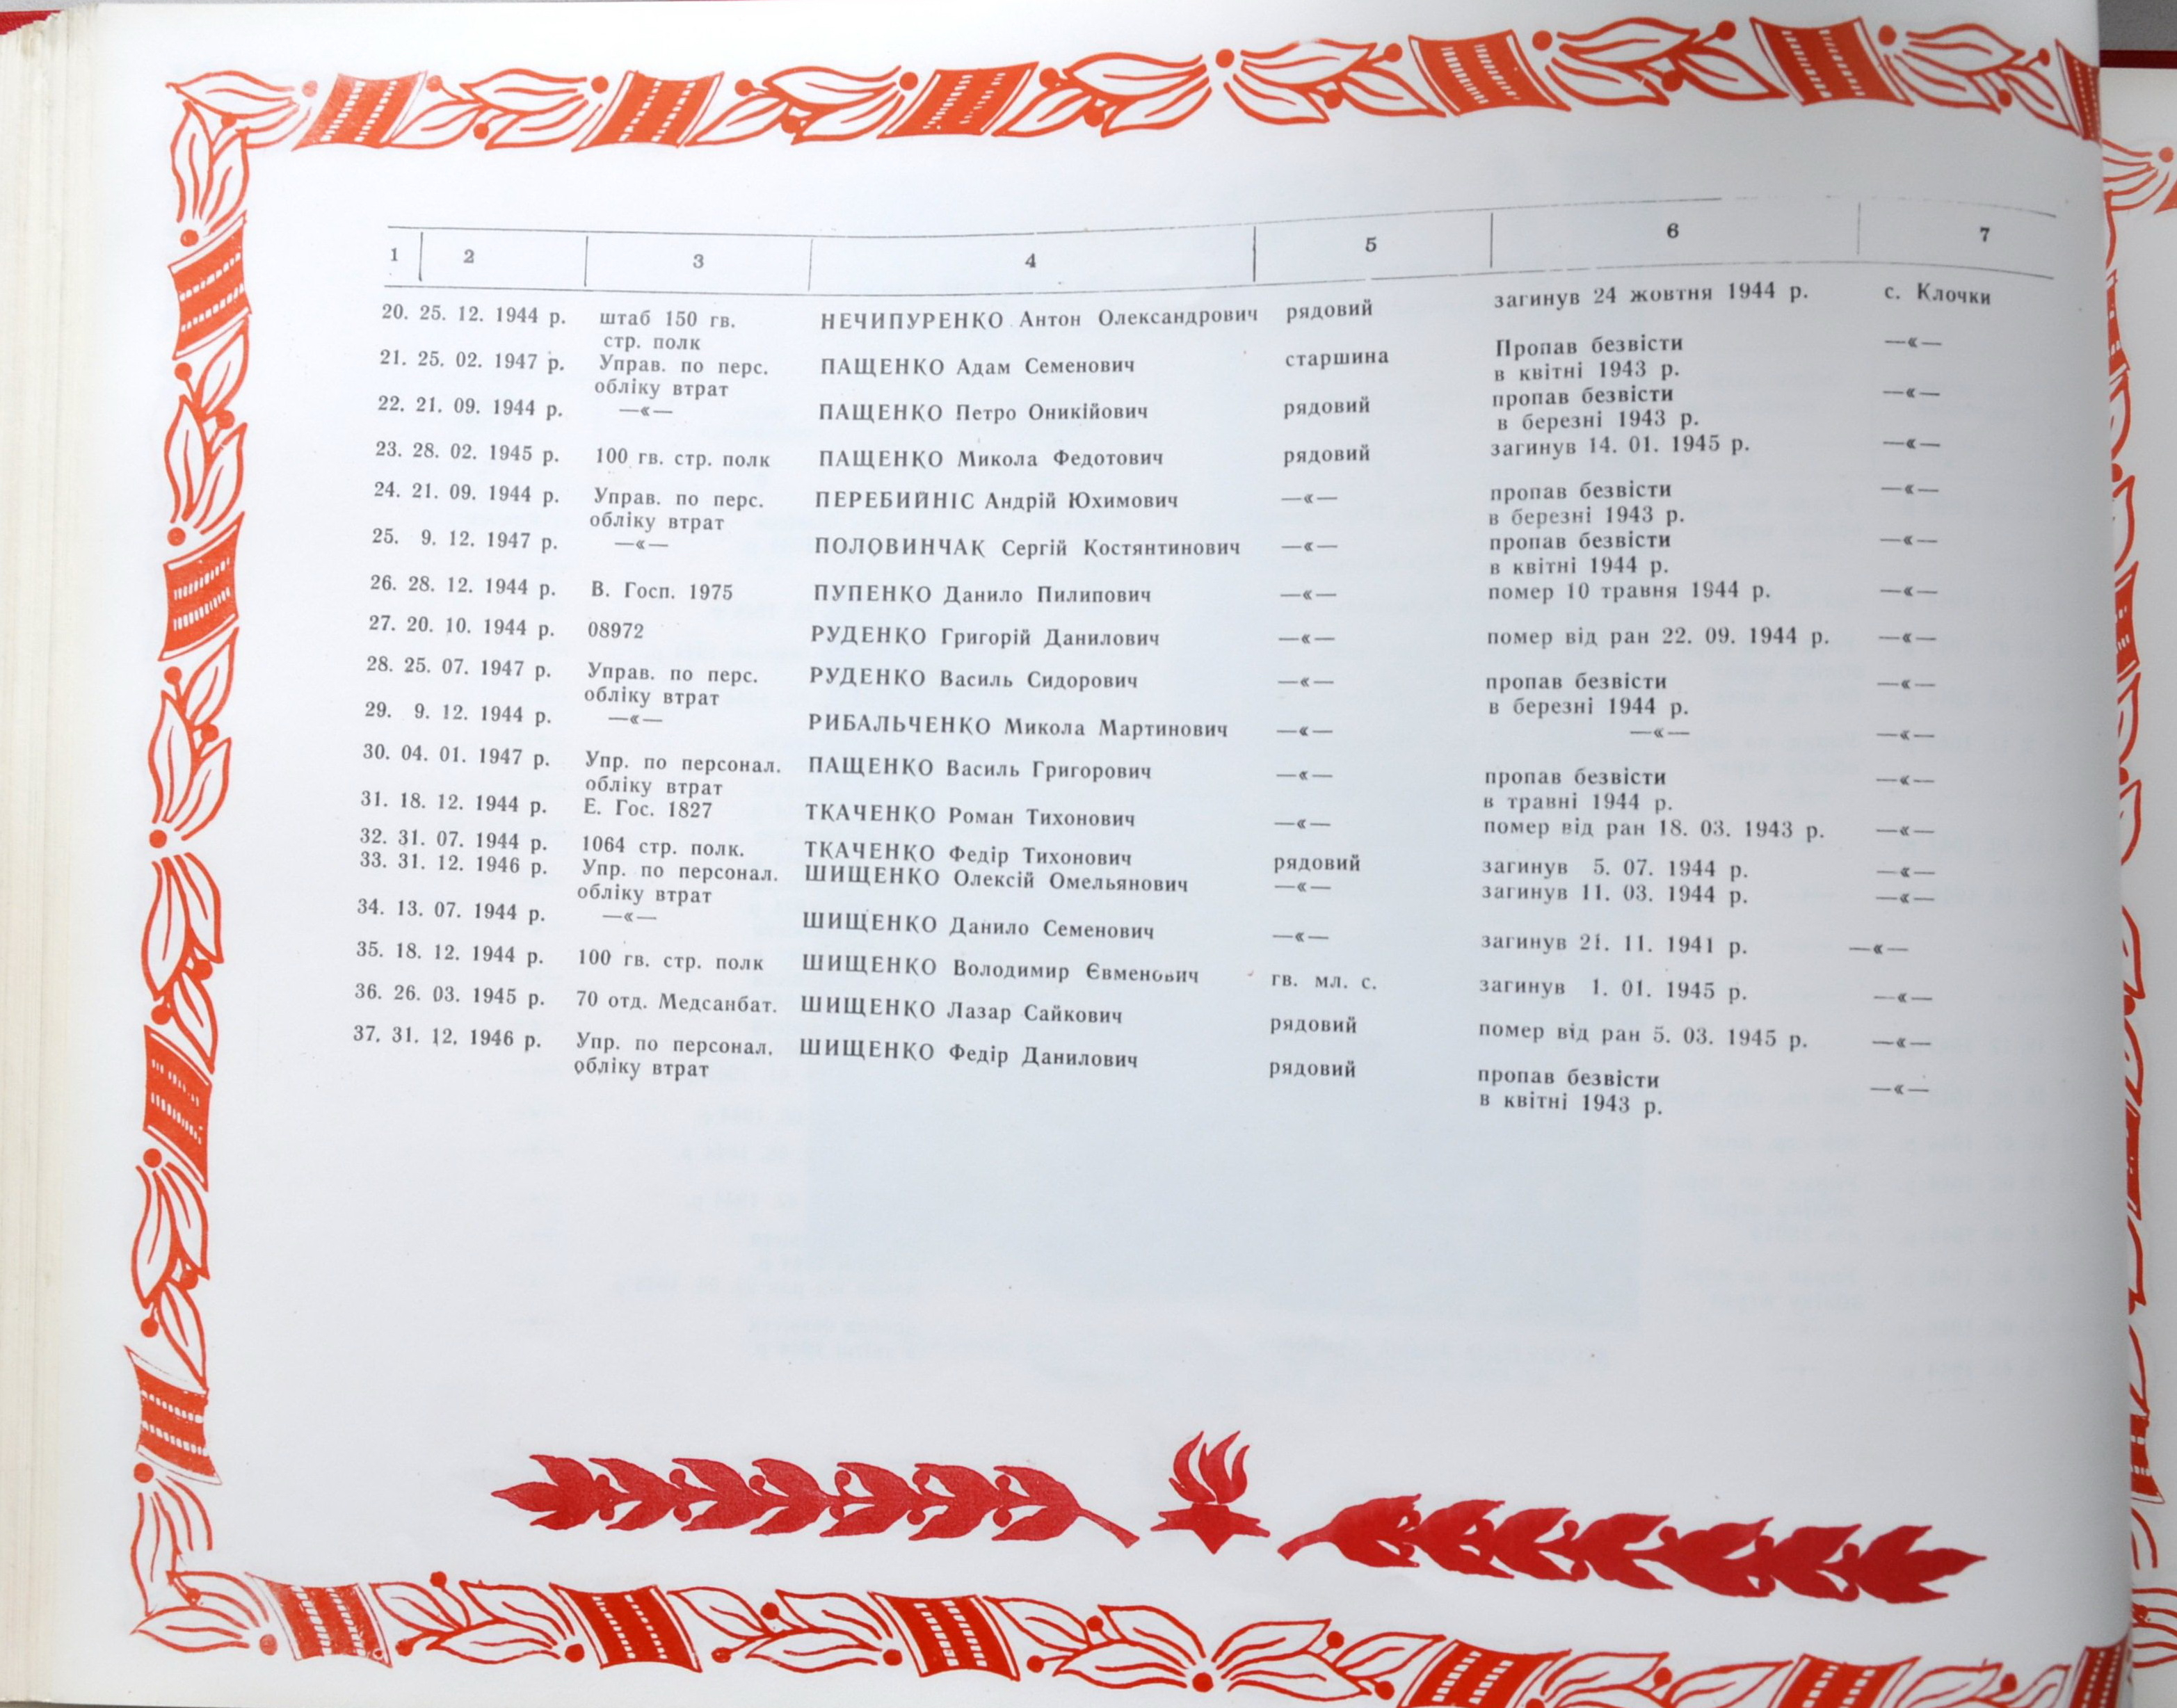 1 2 3 4 5 6 7
20. 25. 12. 1944 р. штаб 150 гв. НЕЧИПУРЕНКО Антон Олександрович рядовий загинув 24 жовтня 1944 р. с. Клочки
стр. полк
21. 25. 02. 1947 р. Управ. по перс. ПАЩЕНКО Адам Семенович старшина Пропав безвісти —«—
обліку втрат в квітні 1943 р.
22. 21. 09. 1944 р. —«— ПАЩЕНКО Петро Оникійович рядовий пропав безвісти —«—
в березні 1943 р.
23. 28. 02. 1945 р. 100 гв. стр. полк ПАЩЕНКО Микола Федотович рядовий загинув 14. 01. 1945 р. —«—
24. 21. 09. 1944 р. Управ. по перс. ПЕРЕБИЙНІС Андрій Юхимович —«— пропав безвісти —«—
обліку втрат в березні 1943 р.
25. 9. 12. 1947 р. —«— ПОЛОВИНЧАК Сергій Костянтинович —«— пропав безвісти —«—
в квітні 1944 р.
26. 28. 12. 1944 р. В. Госп. 1975 ПУПЕНКО Данило Пилипович —«— помер 10 травня 1944 р. —«—
27. 20. 10. 1944 р. 08972 РУДЕНКО Григорій Данилович —«— помер від ран 22. 09. 1944 р. —«—
28. 25. 07. 1947 р. Управ. по перс. РУДЕНКО Василь Сидорович —«— пропав безвісти —«—
обліку втрат в березні 1944 р.
29. 9. 12. 1944 р. —«— РИБАЛЬЧЕНКО Микола Мартинович —«— —«— —«—
30. 04. 01. 1947 р. Упр. по персонал. ПАЩЕНКО Василь Григорович —«— пропав безвісти —«—
обліку втрат в травні 1944 р.
31. 18. 12. 1944 р. Е. Гос. 1827 ТКАЧЕНКО Роман Тихонович —«— помер від ран 18. 03. 1943 р. —«—
32. 31. 07. 1944 р. 1064 стр. полк. ТКАЧЕНКО Федір Тихонович рядовий загинув 5. 07. 1944 р. —«—
33. 31. 12. 1946 р. Упр. по персонал. ШИЩЕНКО Олексій Омельянович —«— загинув 11. 03. 1944 р. —«—
обліку втрат
34. 13. 07. 1944 р. —«— ШИЩЕНКО Данило Семенович —«— загинув 21. 11. 1941 р. —«—
35. 18. 12. 1944 р. 100 гв. стр. полк ШИЩЕНКО Володимир Євменович гв. мл. с. загинув 1. 01. 1945 р. —«—
36. 26. 03. 1945 р. 70 отд. Медсанбат. ШИЩЕНКО Лазар Сайкович рядовий помер від ран 5. 03. 1945 р. —«—
37. 31. 12. 1946 р. Упр. по персонал. ШИЩЕНКО Федір Данилович рядовий пропав безвісти —«—
обліку втрат в квітні 1943 р.